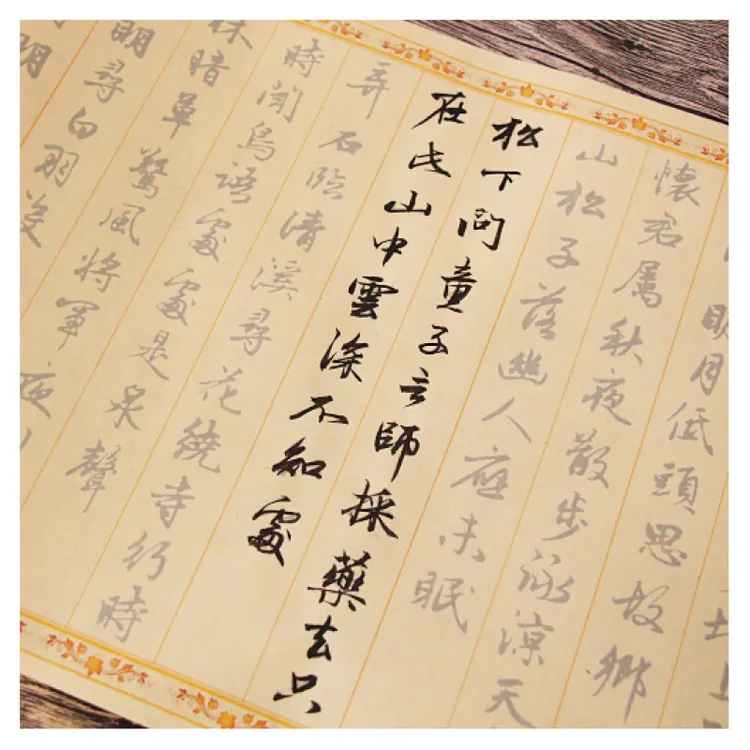 地上
明月低頭思故鄉
懷君属秋夜散步詠涼天
山松子落幽人應未眠
松下問童子言師採藥去只
在此山中雲深不知處
弄石臨清溪尋花繞寺行時
時聞鳥語處處是泉聲
林暗草驚風將軍夜引
明尋白羽没
明